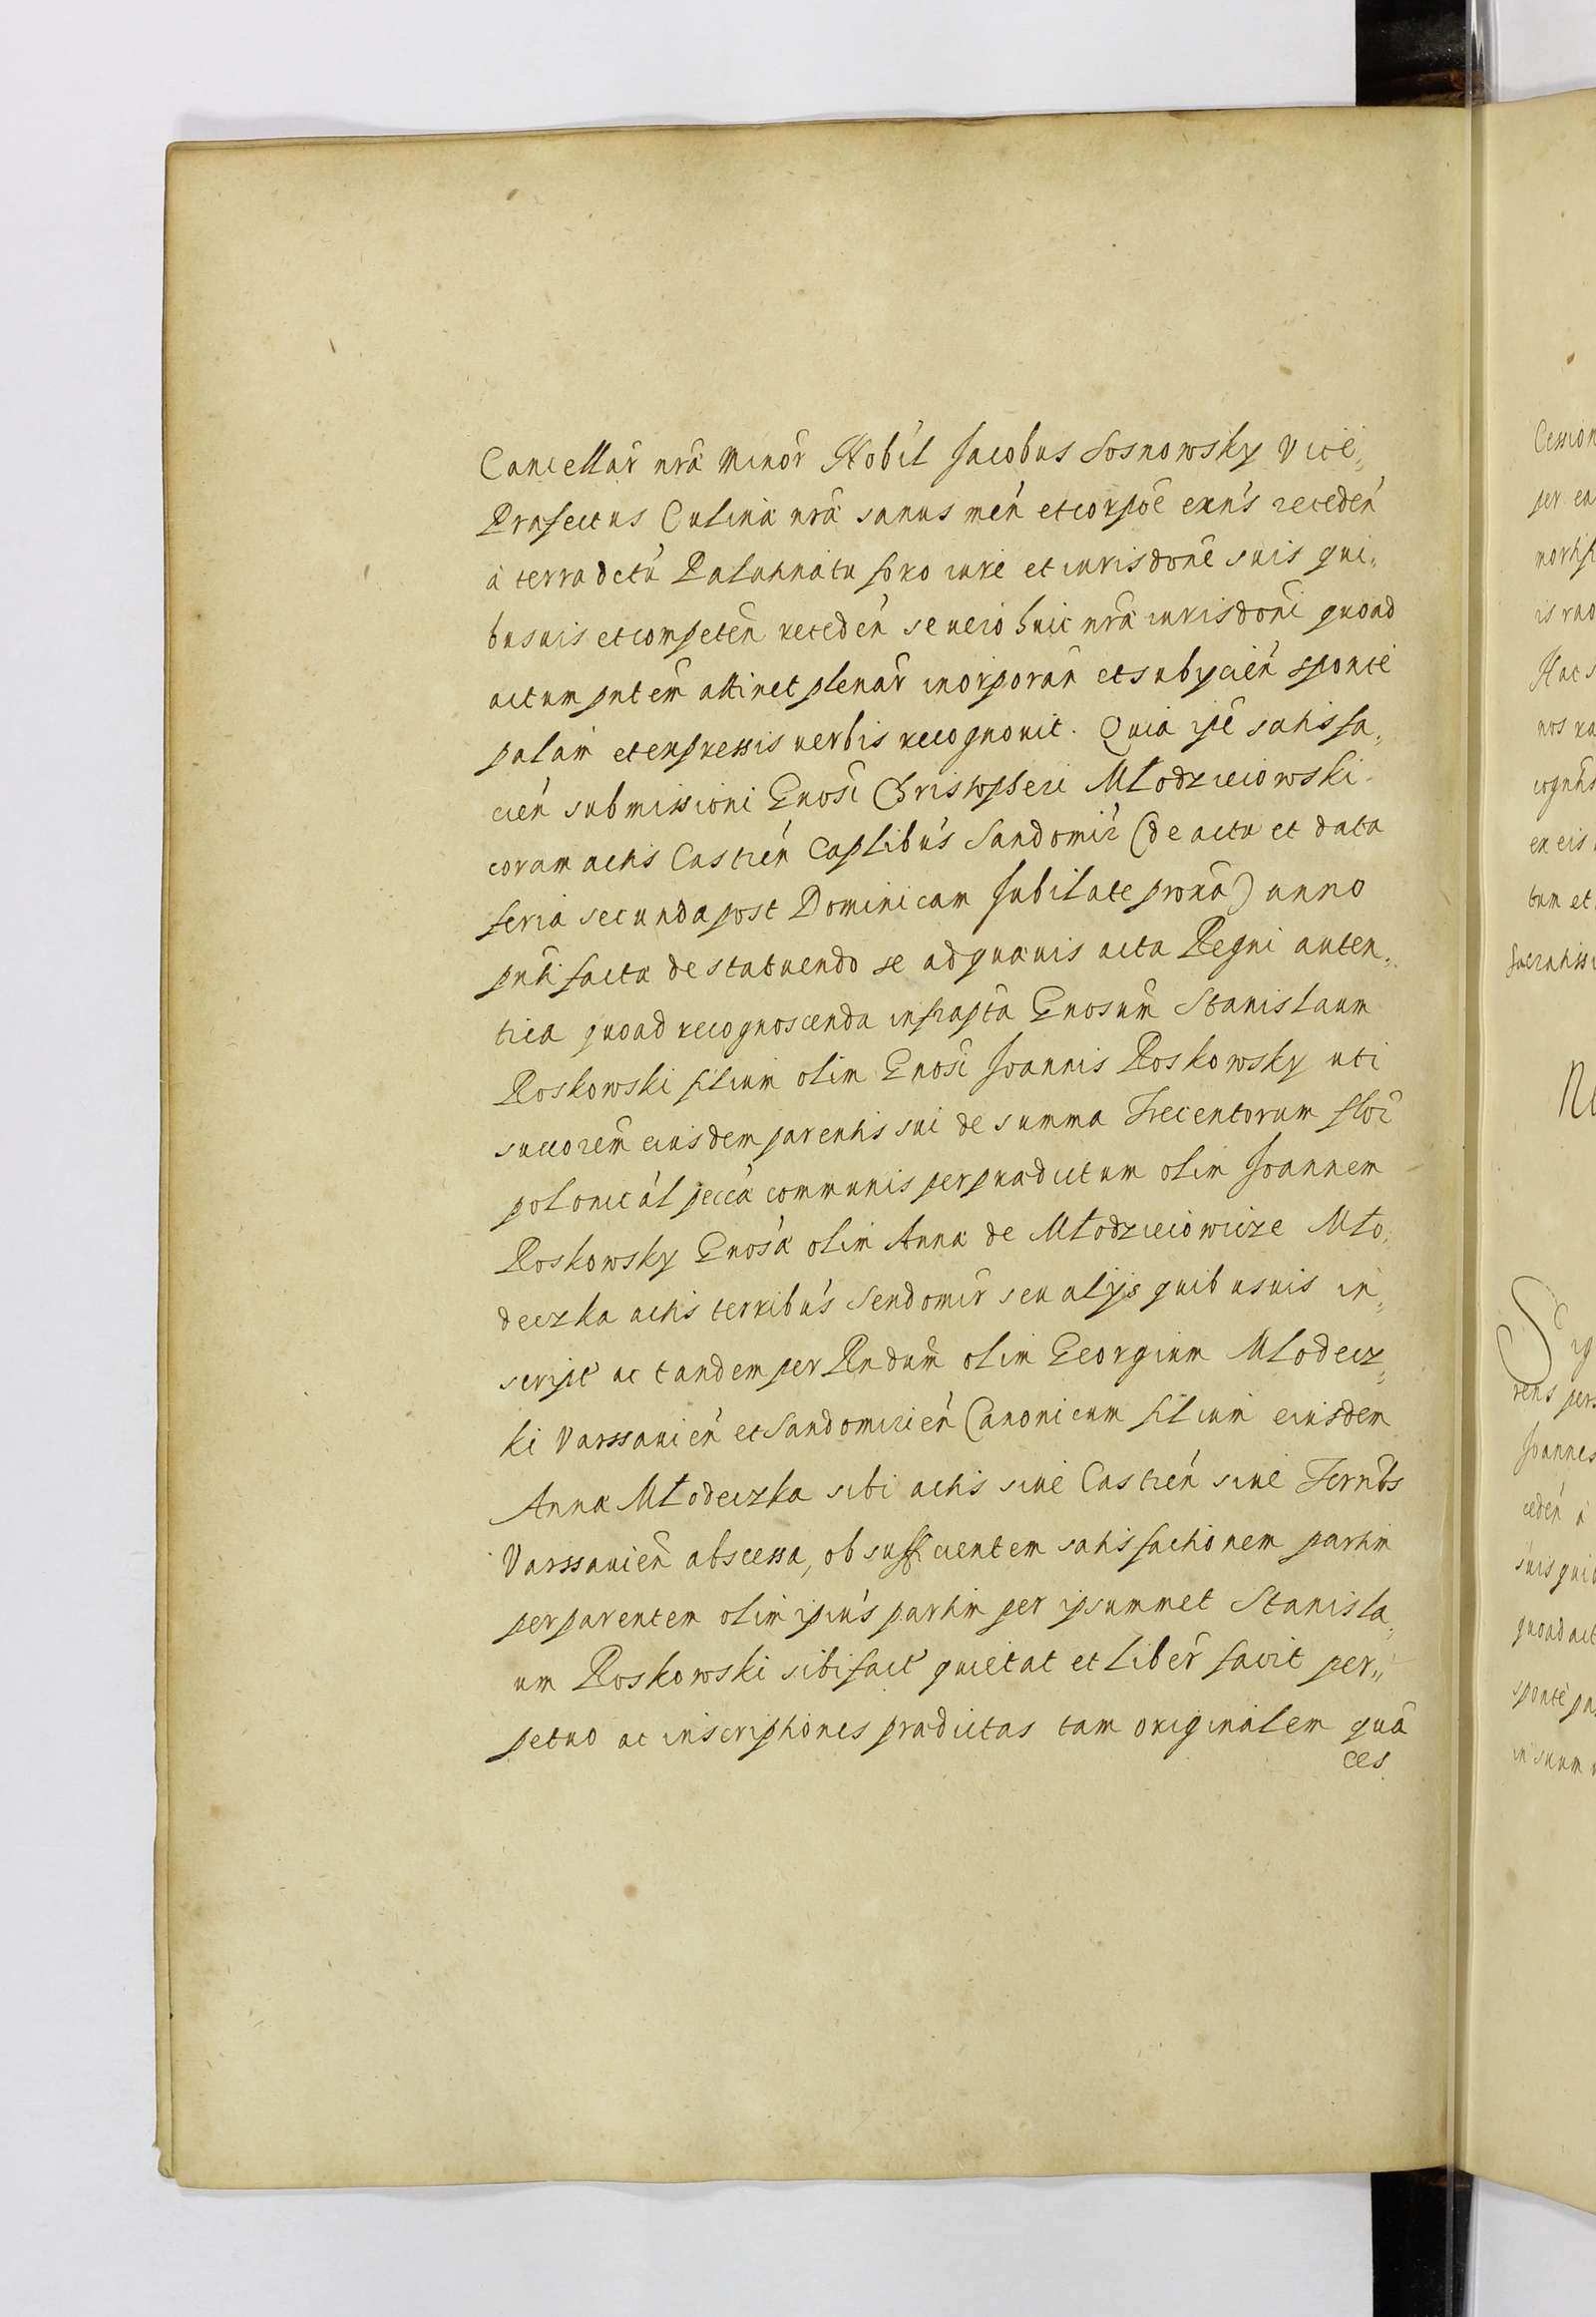 Cancellar̃ nrã minor̃ Nobil Jacobus Sosnowsky Vice„
Præfectus Culinæ nrã sanus meñ et corpõe exñs receden
à terra dctũ Palatinatu foro iure et iurisdõne suis qui„
busuis et competeñ recedeñ se uero huic nrã iurisdõni quoad
actum pntem attinet plenar̃ incorporañ et subyacieñ sponte
palam et expressis uerbis recognouit. Quia ipẽ satisfa„
cieñ submissioni Gnosi Christopheri Młodzieiowski
coram actis Castreñ Caplibus Sandomir̃ (de actu et data
feria secunda post Dominicam Jubilate proxã) anno
pñti facta de statuendo se ad quæuis acta Regni auten„
tica quoad recognoscenda infrapta Gnosum Stanislaum
Roskowski filium olim Gnosi Joannis Roskowsky uti
succorem eiusdem parentis sui de summa Trecentorum flor̃
polonical pecca communis per prædictum olim Joannem
Roskowsky Gnosæ olim Anna de Młodzieiowicze Mło„
deczka actis terribus Sendomir̃ seu alijs quibusuis in„
script ac tandem per Rndum olim Georgium Młodecz„
ki Varssauieñ et Sandomirieñ Canonicum filium eiusdem
Annæ Młodeczka sibi actis siue Castreñ siue Terribs
Varssauieñ abscessa, ob sufficientem satisfactionem partim
per parentem olim ipius partim per ipsummet Stanisla„
um Roskowski sibi fact quietat et liber̃ facit per„
petuo ac inscriptiones prædictas tam originalem quã
ces
Cession
per ea
Joannes
cedeñ à
suis quib
quoad act
sponte pa
in suum